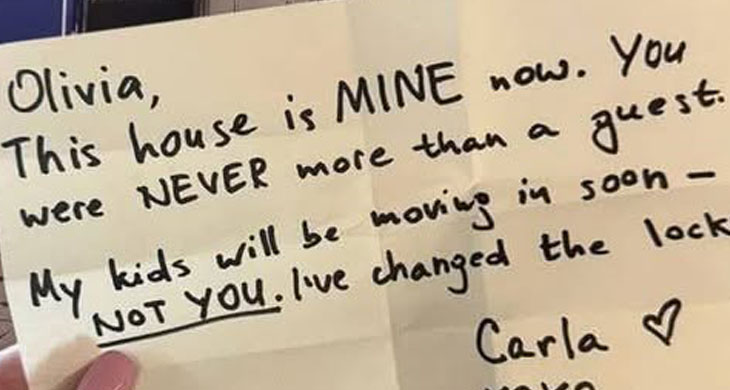 Olivia,
This house is MINE now. You
were NEVER more than a guest.
My kids will be moving in soon –
NOT YOU. I've changed the lock
Carla ♡